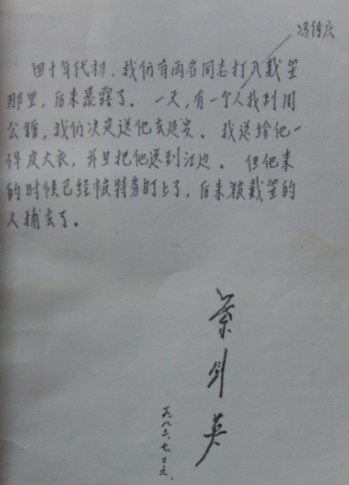 冯传庆
四十年代初，我们有两名同志打入戴笠
那里，后来暴露了。一天，有一个人找到周
公馆，我们决定送他去延安。我送给他一
件皮大衣，并且把他送到江边。但他来
的时候已经被特务盯上了，后来被戴笠的
人捕去了。
叶剑英
一九八三、七、